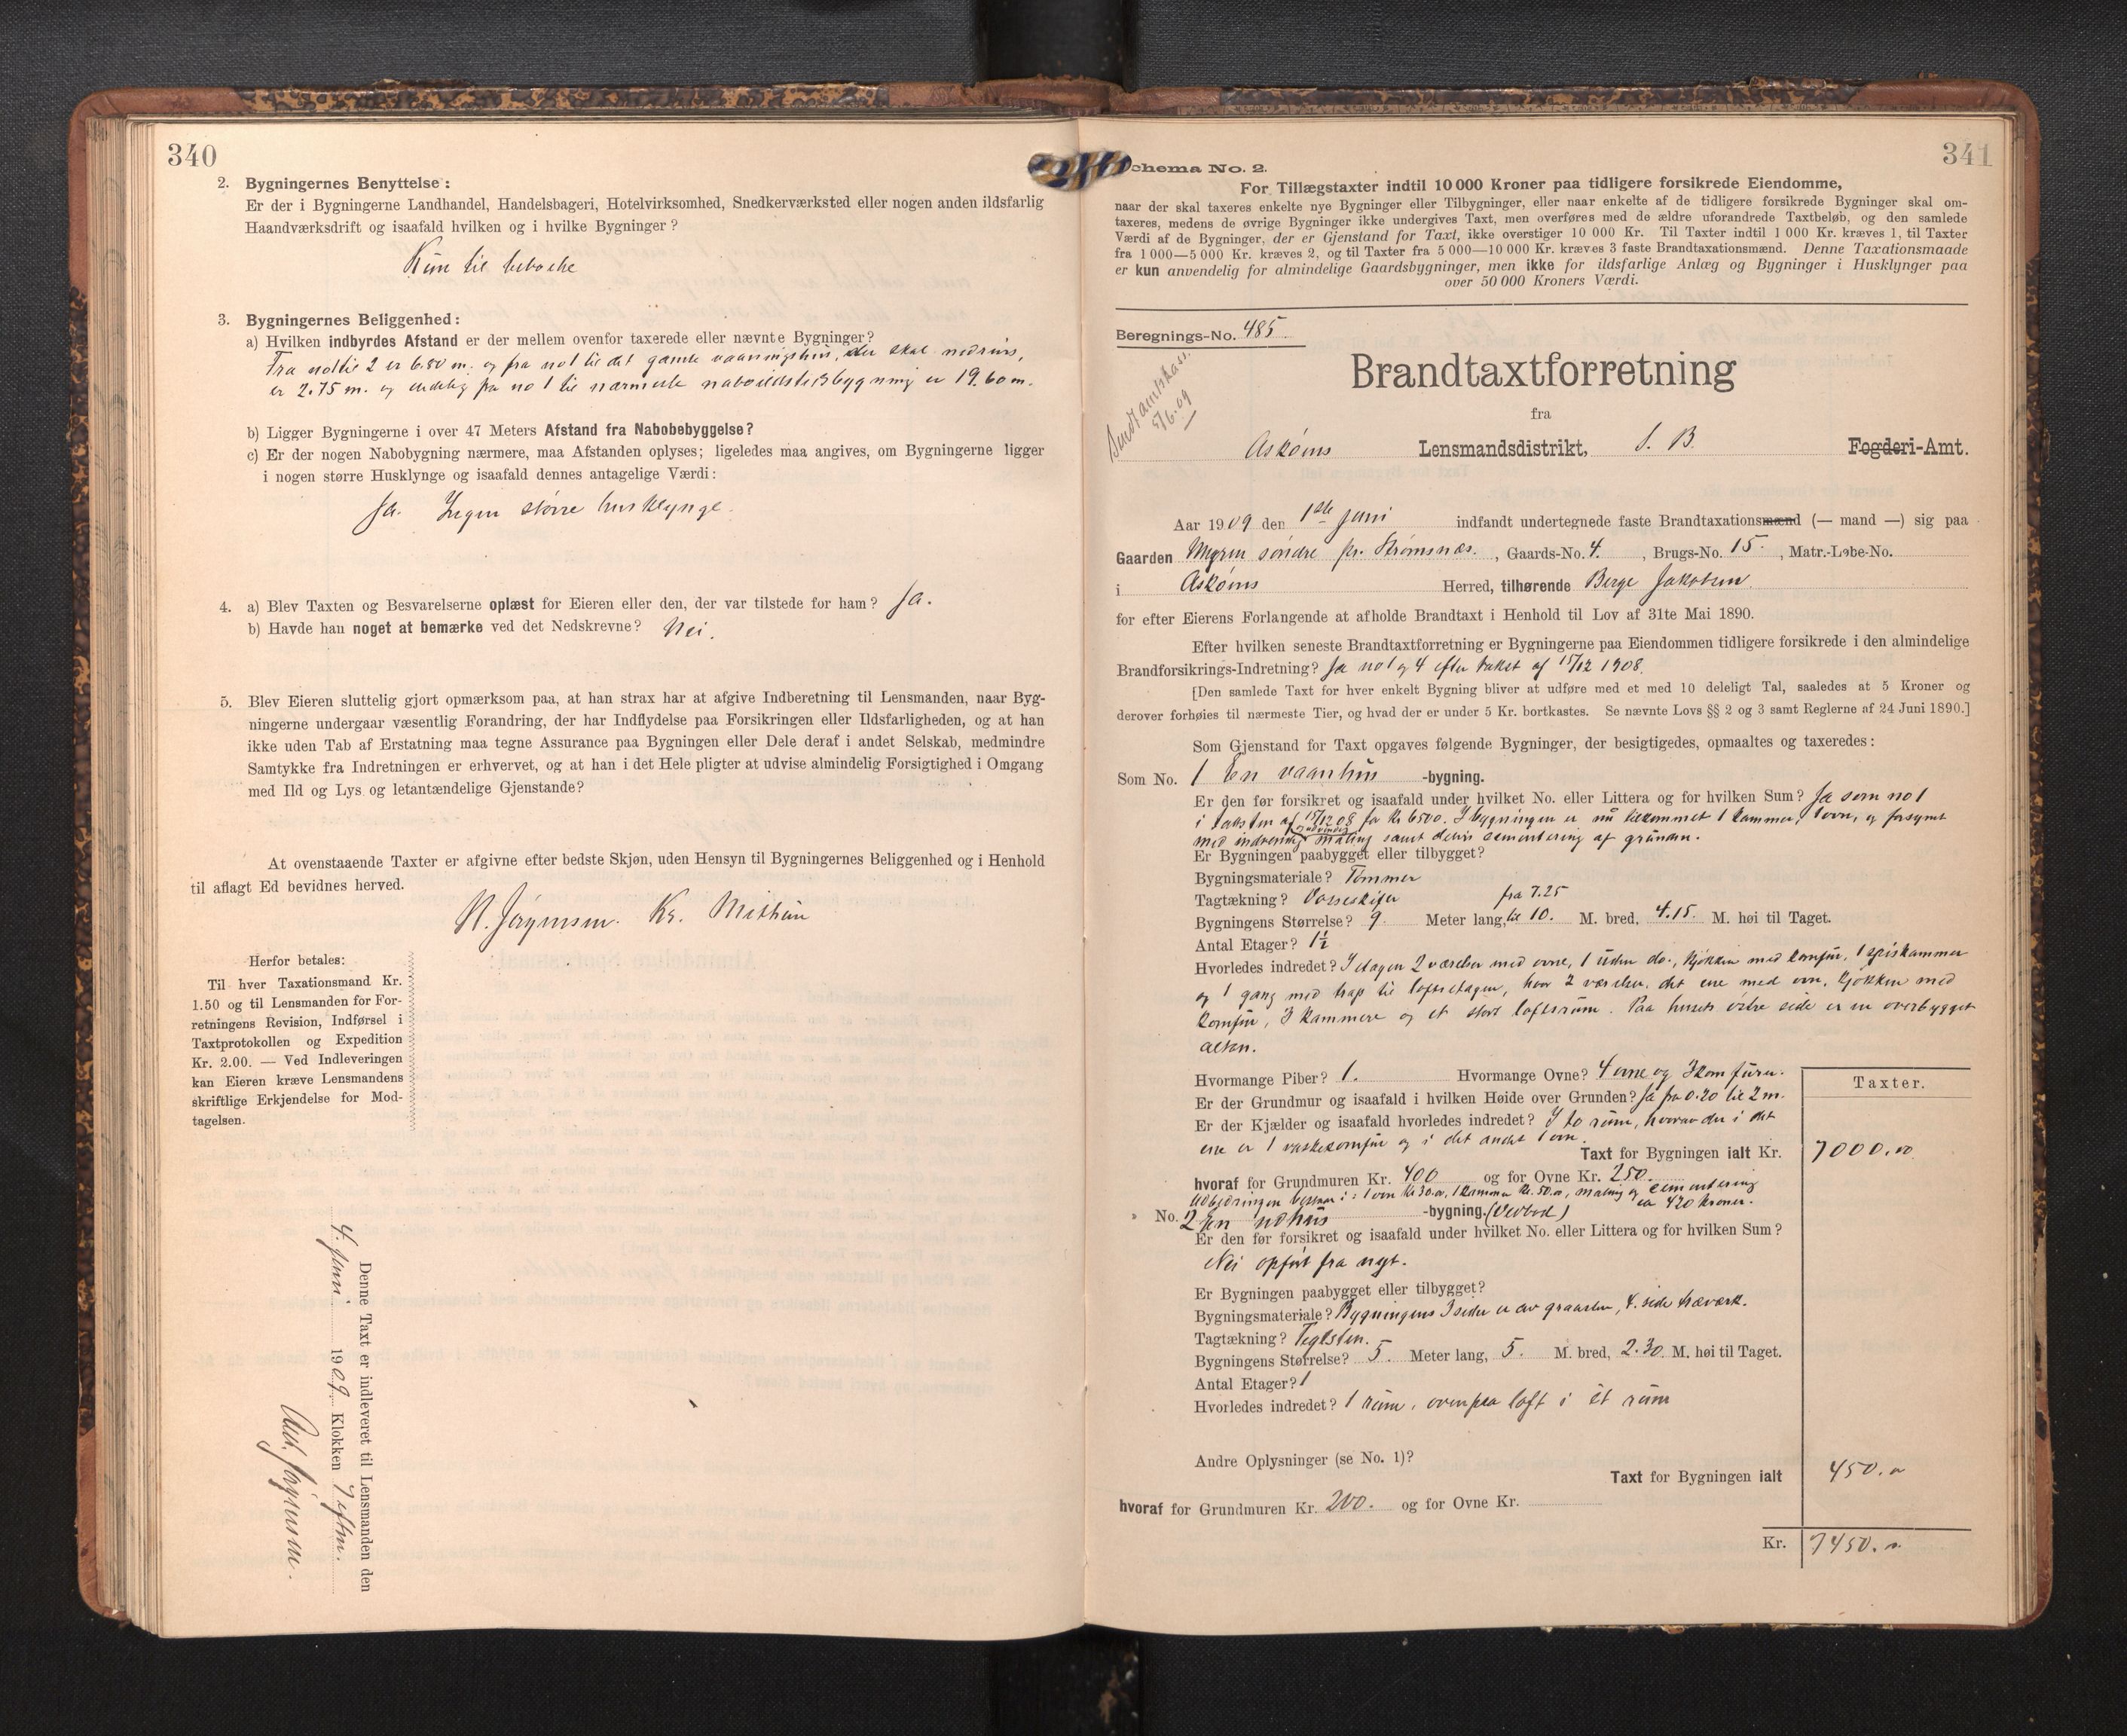 340
2. Bygningernes Benyttelse:
Er der i Bygningerne Landhandel, Handelsbageri, Hotelvirksomhed, Snedkerværksted eller nogen anden ildsfarlig
Haandværksdrift og isaafald hvilken og i hvilke Bygninger?
Kun til beboelse
3. Bygningernes Beliggenhed:
a) Hvilken indbyrdes Afstand er der mellem ovenfor taxerede eller nævnte Bygninger?
Fra no 1 til 2 er 6.80 m. og fra no 1 til det gamle vaaningshus, der skal nedrives,
er 2.75 m. og endelig fra no 1 til nærmeste naboildstedsbygning er 19.60 m.
b) Ligger Bygningerne i over 47 Meters Afstand fra Nabobebyggelse?
c) Er der nogen Nabobygning nærmere, maa Afstanden oplyses; ligeledes maa angives, om Bygningerne ligger
i nogen større Husklynge og isaafald dennes antagelige Værdi:
Ja. Ingen større husklynge.
4. a) Blev Taxten og Besvarelserne oplæst for Eieren eller den, der var tilstede for ham? Ja.
b) Havde han noget at bemærke ved det Nedskrevne? Nei.
5. Blev Eieren sluttelig gjort opmærksom paa, at han strax har at afgive Indberetning til Lensmanden, naar Byg-
ningerne undergaar væsentlig Forandring, der har Indflydelse paa Forsikringen eller Ildsfarligheden, og at han
ikke uden Tab af Erstatning maa tegne Assurance paa Bygningen eller Dele deraf i andet Selskab, medmindre
Samtykke fra Indretningen er erhvervet, og at han i det Hele pligter at udvise almindelig Forsigtighed i Omgang
med Ild og Lys og letantændelige Gjenstande?
At ovenstaaende Taxter er afgivne efter bedste Skjøn, uden Hensyn til Bygningernes Beliggenhed og i Henhold
til aflagt Ed bevidnes herved.
N. Jørgensen. Kr. Mithun
Herfor betales:
Til hver Taxationsmand Kr.
1.50 og til Lensmanden for For-
retningens Revision, Indførsel i
Taxtprotokollen og Expedition
Kr. 2.00. — Ved Indleveringen
kan Eieren kræve Lensmandens
skriftlige Erkjendelse for Mod-
tagelsen.
Denne Taxt er indleveret til Lensmanden den
4. Juni 1909 Klokken 7 eftm.
Jørgensen.
341
Schema No. 2.
For Tillægstaxter indtil 10 000 Kroner paa tidligere forsikrede Eiendomme,
naar der skal taxeres enkelte nye Bygninger eller Tilbygninger, eller naar enkelte af de tidligere forsikrede Bygninger skal om-
taxeres, medens de øvrige Bygninger ikke undergives Taxt, men overføres med de ældre uforandrede Taxtbeløb, og den samlede
Værdi af de Bygninger, der er Gjenstand for Taxt, ikke overstiger 10 000 Kr. Til Taxter indtil 1 000 Kr. kræves 1, til Taxter
fra 1 000—5 000 Kr. kræves 2, og til Taxter fra 5 000—10 000 Kr. kræves 3 faste Brandtaxationsmænd. Denne Taxationsmaade
er kun anvendelig for almindelige Gaardsbygninger, men ikke for ildsfarlige Anlæg og Bygninger i Husklynger paa
over 50 000 Kroners Værdi.
Beregnings-No. 485
Sendt amtskass.
5/6.09
Brandtaxtforretning
fra
Askøens Lensmandsdistrikt, S. B Fogderi-Amt.
Aar 1909 den 1ste Juni indfandt undertegnede faste Brandtaxationsmænd (— mand —) sig paa
Gaarden Myren søndre pr. Strømsnæs. , Gaards-No. 4. , Brugs-No. 15. , Matr.-Løbe-No.
i Askøens Herred, tilhørende Berge Jakobsen
for efter Eierens Forlangende at afholde Brandtaxt i Henhold til Lov af 31te Mai 1890.
Efter hvilken seneste Brandtaxtforretning er Bygningerne paa Eiendommen tidligere forsikrede i den almindelige
Brandforsikrings-Indretning? Ja no 1 og 4 efter takst af 15/12 1908.
[Den samlede Taxt for hver enkelt Bygning bliver at udføre med et med 10 deleligt Tal, saaledes at 5 Kroner og
derover forhøies til nærmeste Tier, og hvad der er under 5 Kr. bortkastes. Se nævnte Lovs §§ 2 og 3 samt Reglerne af 24 Juni 1890.]
Som Gjenstand for Taxt opgaves følgende Bygninger, der besigtigedes, opmaaltes og taxeredes:
Som No. 1 En vaanhus -bygning.
Er den før forsikret og isaafald under hvilket No. eller Littera og for hvilken Sum? Ja som no 1
i taksten af 15/12 08 for kr 6500. I bygningen er nu tilkommet 1 kammer, 1 ovn, og forsynt
med indvendig og udvendig maling samt delvis cementering af grunden.
Er Bygningen paabygget eller tilbygget?
Bygningsmateriale? Tømmer
Tagtækning? Vosseskifer
Bygningens Størrelse? 9 Meter lang, fra 7.25 til 10. M. bred, 4.15. M. høi til Taget.
Antal Etager? 1½
Hvorledes indredet? I etagen 2 værelser med ovne, 1 uden do., kjøkken med komfur, 1 spiskammer
og 1 gang med trap til loftsetagen, hvor 2 værelser, det ene med ovn, kjøkken med
komfur, 3 kammere og et stort loftsrum. Paa husets østre side er en overbygget
altan.
Hvormange Piber? 1. Hvormange Ovne? 4 ovne og 3 komfurer.
Er der Grundmur og isaafald i hvilken Høide over Grunden? Ja fra 0.20 til 2 m.
Er der Kjælder og isaafald hvorledes indredet? I to rum, hvorav der i det
ene er 1 vaskekomfur og i det andet 1 ovn.
Taxter.
Taxt for Bygningen ialt Kr. 7000.00
hvoraf for Grundmuren Kr. 400 og for Ovne Kr. 250.
Udbedringen bestaar i: 1 ovn kr 30.00, 1 kammer kr. 50.00, maling og cementering
ca 420 kroner.
No. 2 En udhus -bygning. (Vedbod)
Er den før forsikret og isaafald under hvilket No. eller Littera og for hvilken Sum?
Nei opført fra nyt.
Er Bygningen paabygget eller tilbygget?
Bygningsmateriale? Bygningens 3 sider er av graasten, 4. side træværk.
Tagtækning? Teglsten.
Bygningens Størrelse? 5. Meter lang, 5. M. bred, 2.30. M. høi til Taget.
Antal Etager? 1
Hvorledes indredet? 1 rum, ovenpaa loft i et rum
Andre Oplysninger (se No. 1)?
Taxt for Bygningen ialt 450.00
hvoraf for Grundmuren Kr. 200. og for Ovne Kr.
Kr. 7450.00